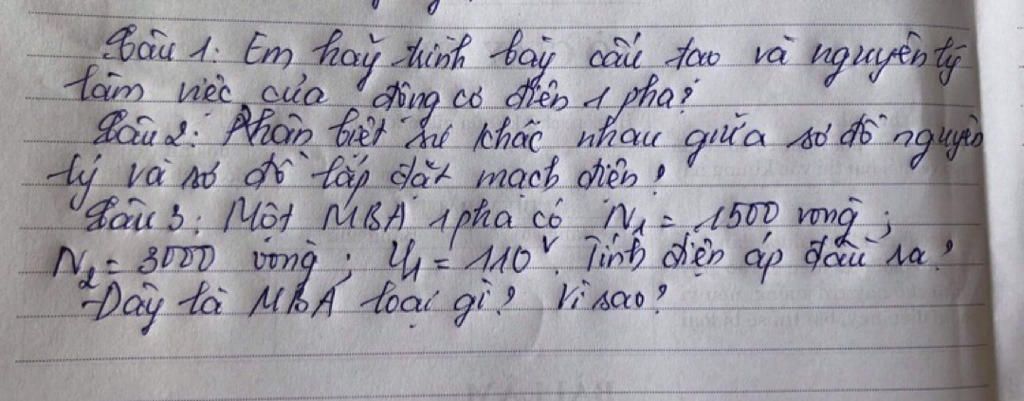 Câu 1: Em hãy trình bày cấu tạo và nguyên lý
làm việc của động cơ điện 1 pha?
Câu 2: Phân biệt sự khác nhau giữa sơ đồ nguyên
lý và sơ đồ lắp đặt mạch điện?
Câu 3: Một MBA 1 pha có N1 = 1500 vòng;
N2 = 3000 vòng; U1 = 110V. Tính điện áp đầu ra?
- Đây là MBA loại gì? Vì sao?